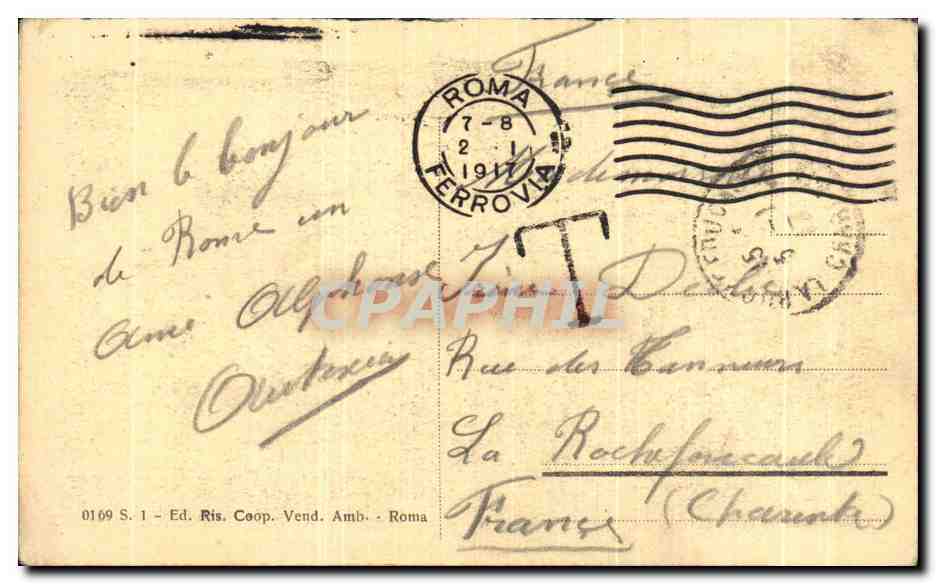 France
ROMA
7-8
2 1
1917
FERROVIA
T
Bien le bonjour
de Rome un
ami Alphonse
Mademoiselle
Rue des Tanneurs
La Rochefoucauld
(Charente)
France
0169 S. 1 - Ed. Ris. Coop. Vend. Amb. - Roma
CPAPHIL